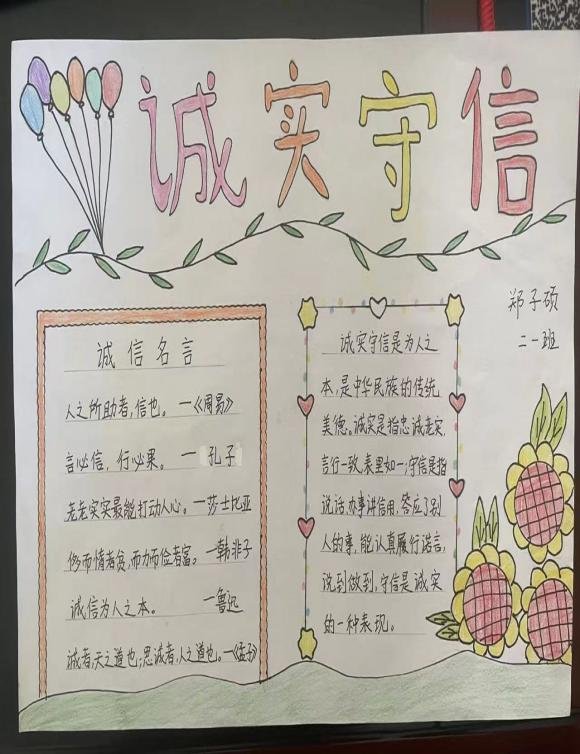 诚实守信
郑子硕
二一班
诚信名言
人之所助者，信也。一《周易》
言必信，行必果。一孔子
老老实实最能打动人心。一莎士比亚
侈而惰者贫，而力而俭者富。一韩非子
诚信为人之本。一鲁迅
诚者，天之道也；思诚者，人之道也。一《孟子》
诚实守信是为人之
本，是中华民族的传统
美德。诚实是指忠诚老实，
言行一致，表里如一；守信是指
说话、办事讲信用，答应了别
人的事，能认真履行诺言，
说到做到，守信是诚实
的一种表现。